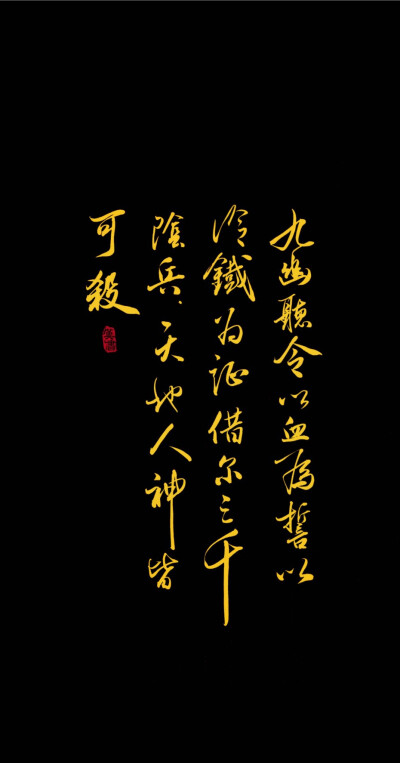 九幽聽令以血為誓以
冷鐵为证借尔三千
陰兵，天地人神皆
可殺